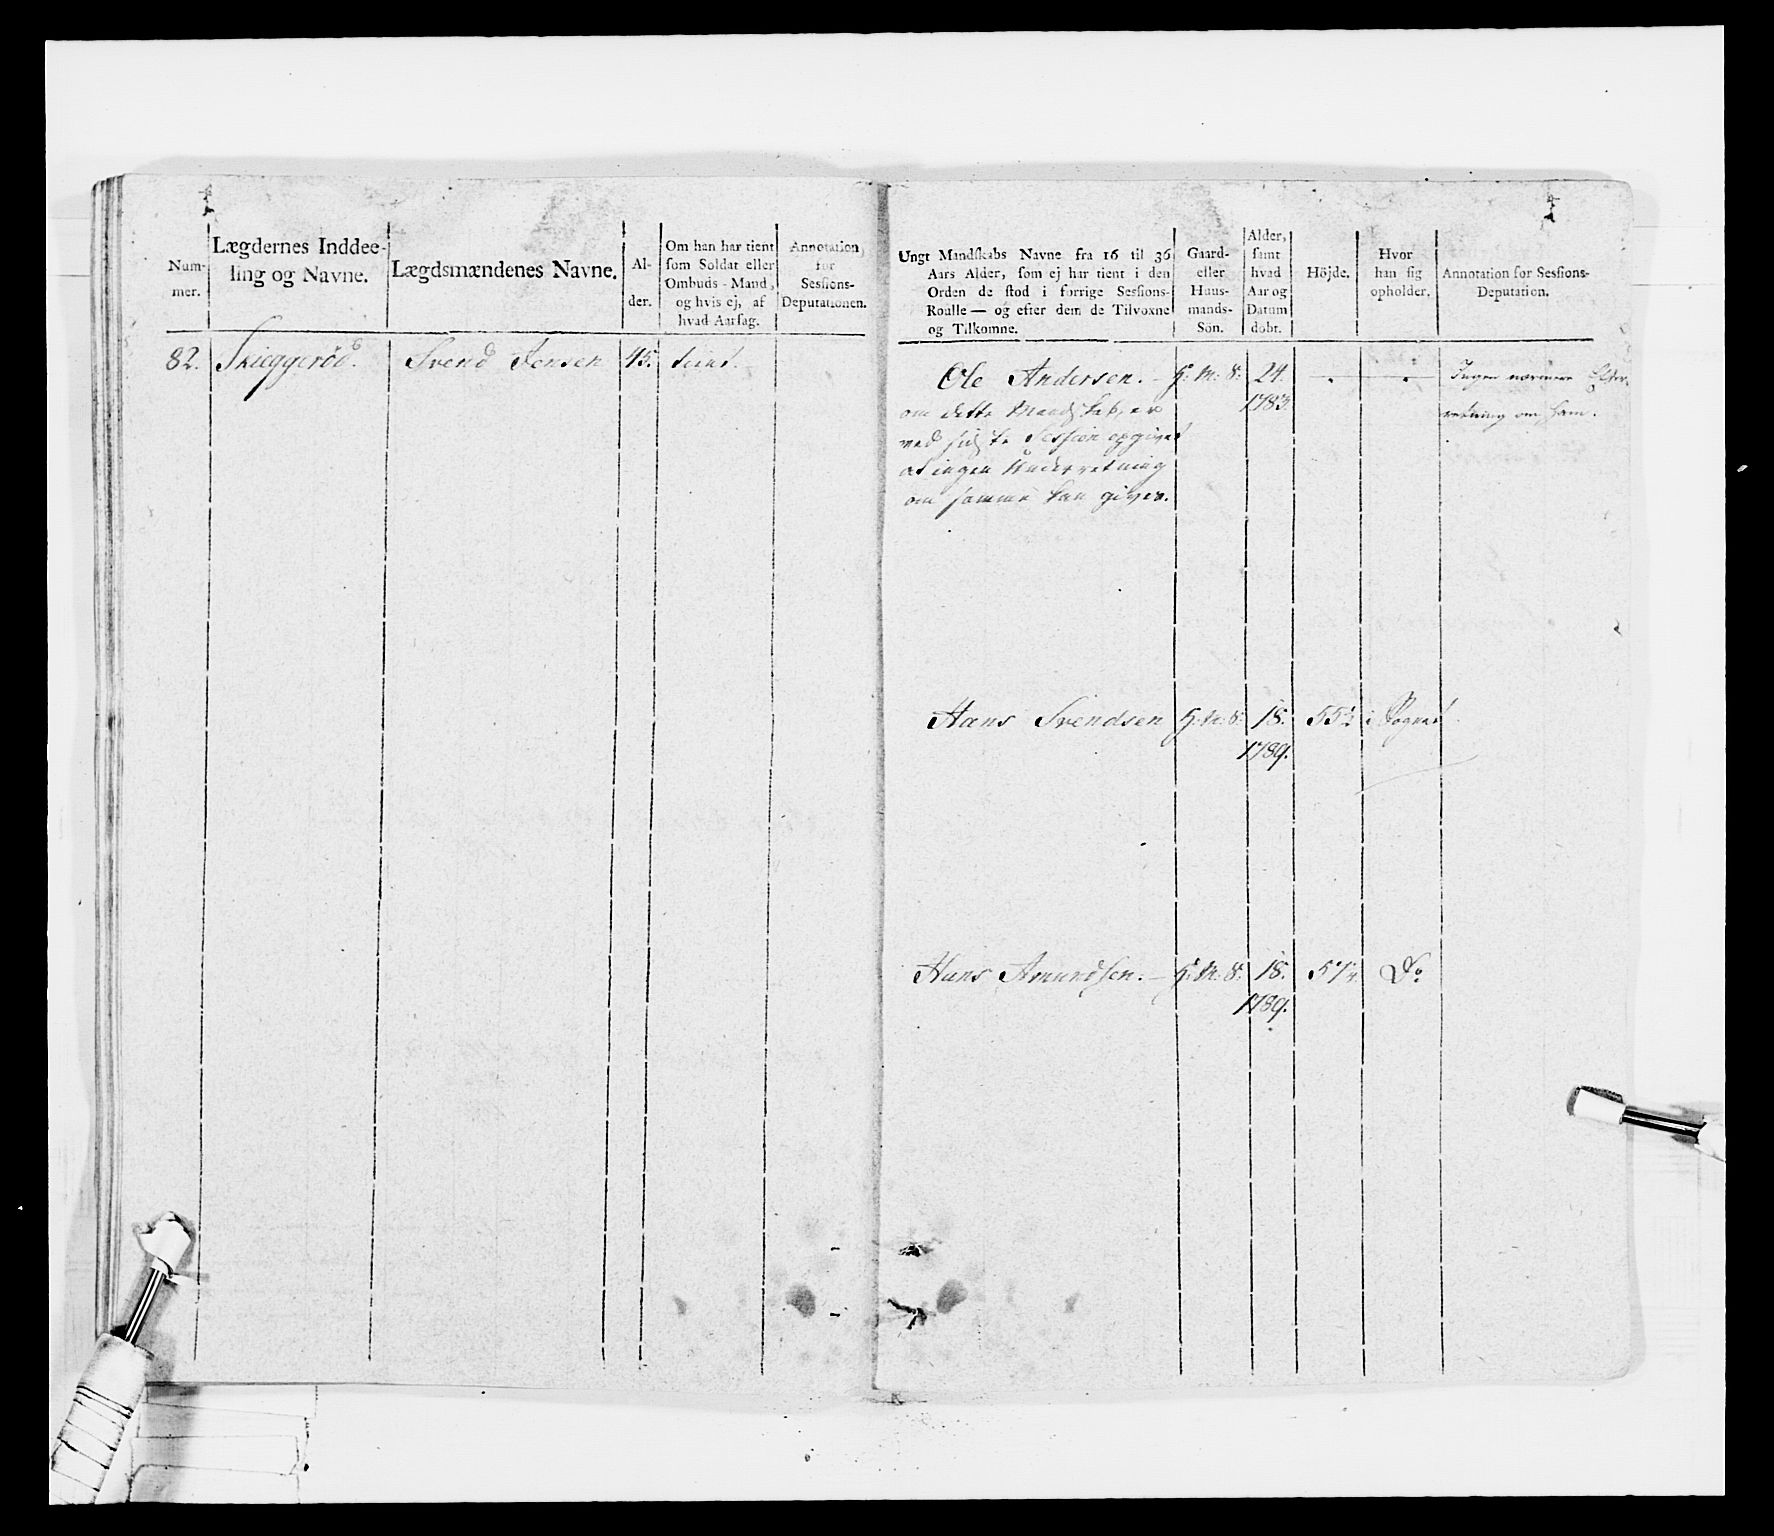 Num-
mer.
Lægdernes Inddee-
ling og Navne.
Lægdsmændenes Navne.
Al-
der.
Om han har tient
som Soldat eller
Ombuds-Mand,
og hvis ej, af
hvad Aarsag.
Annotation
for
Sessions-
Deputationen.
82. Skieggerød. Svend Jensen 45. tient.
Ungt Mandskabs Navne fra 16 til 36
Aars Alder, som ej har tient i den
Orden de stod i forrige Sessions-
Roulle — og efter dem de Tilvoxne
og Tilkomne.
Gaard-
eller
Huus-
mands-
Sön.
Alder,
samt
hvad
Aar og
Datum
döbt.
Höjde.
Hvor
han sig
opholder.
Annotation for Sessions-
Deputation.
Ole Andersen. — H. M. S. 24. Ingen nærmere Efter-
1783. retning om ham.
om dette Mandskab, er
ved sidste Session opgivet
at ingen Underretning
om samme kan gives.
Hans Svendsen H. M. S. 18. 55½ i Sognet
1789.
Hans Amundsen. — H. M. S. 18. 57½ Do
1789.